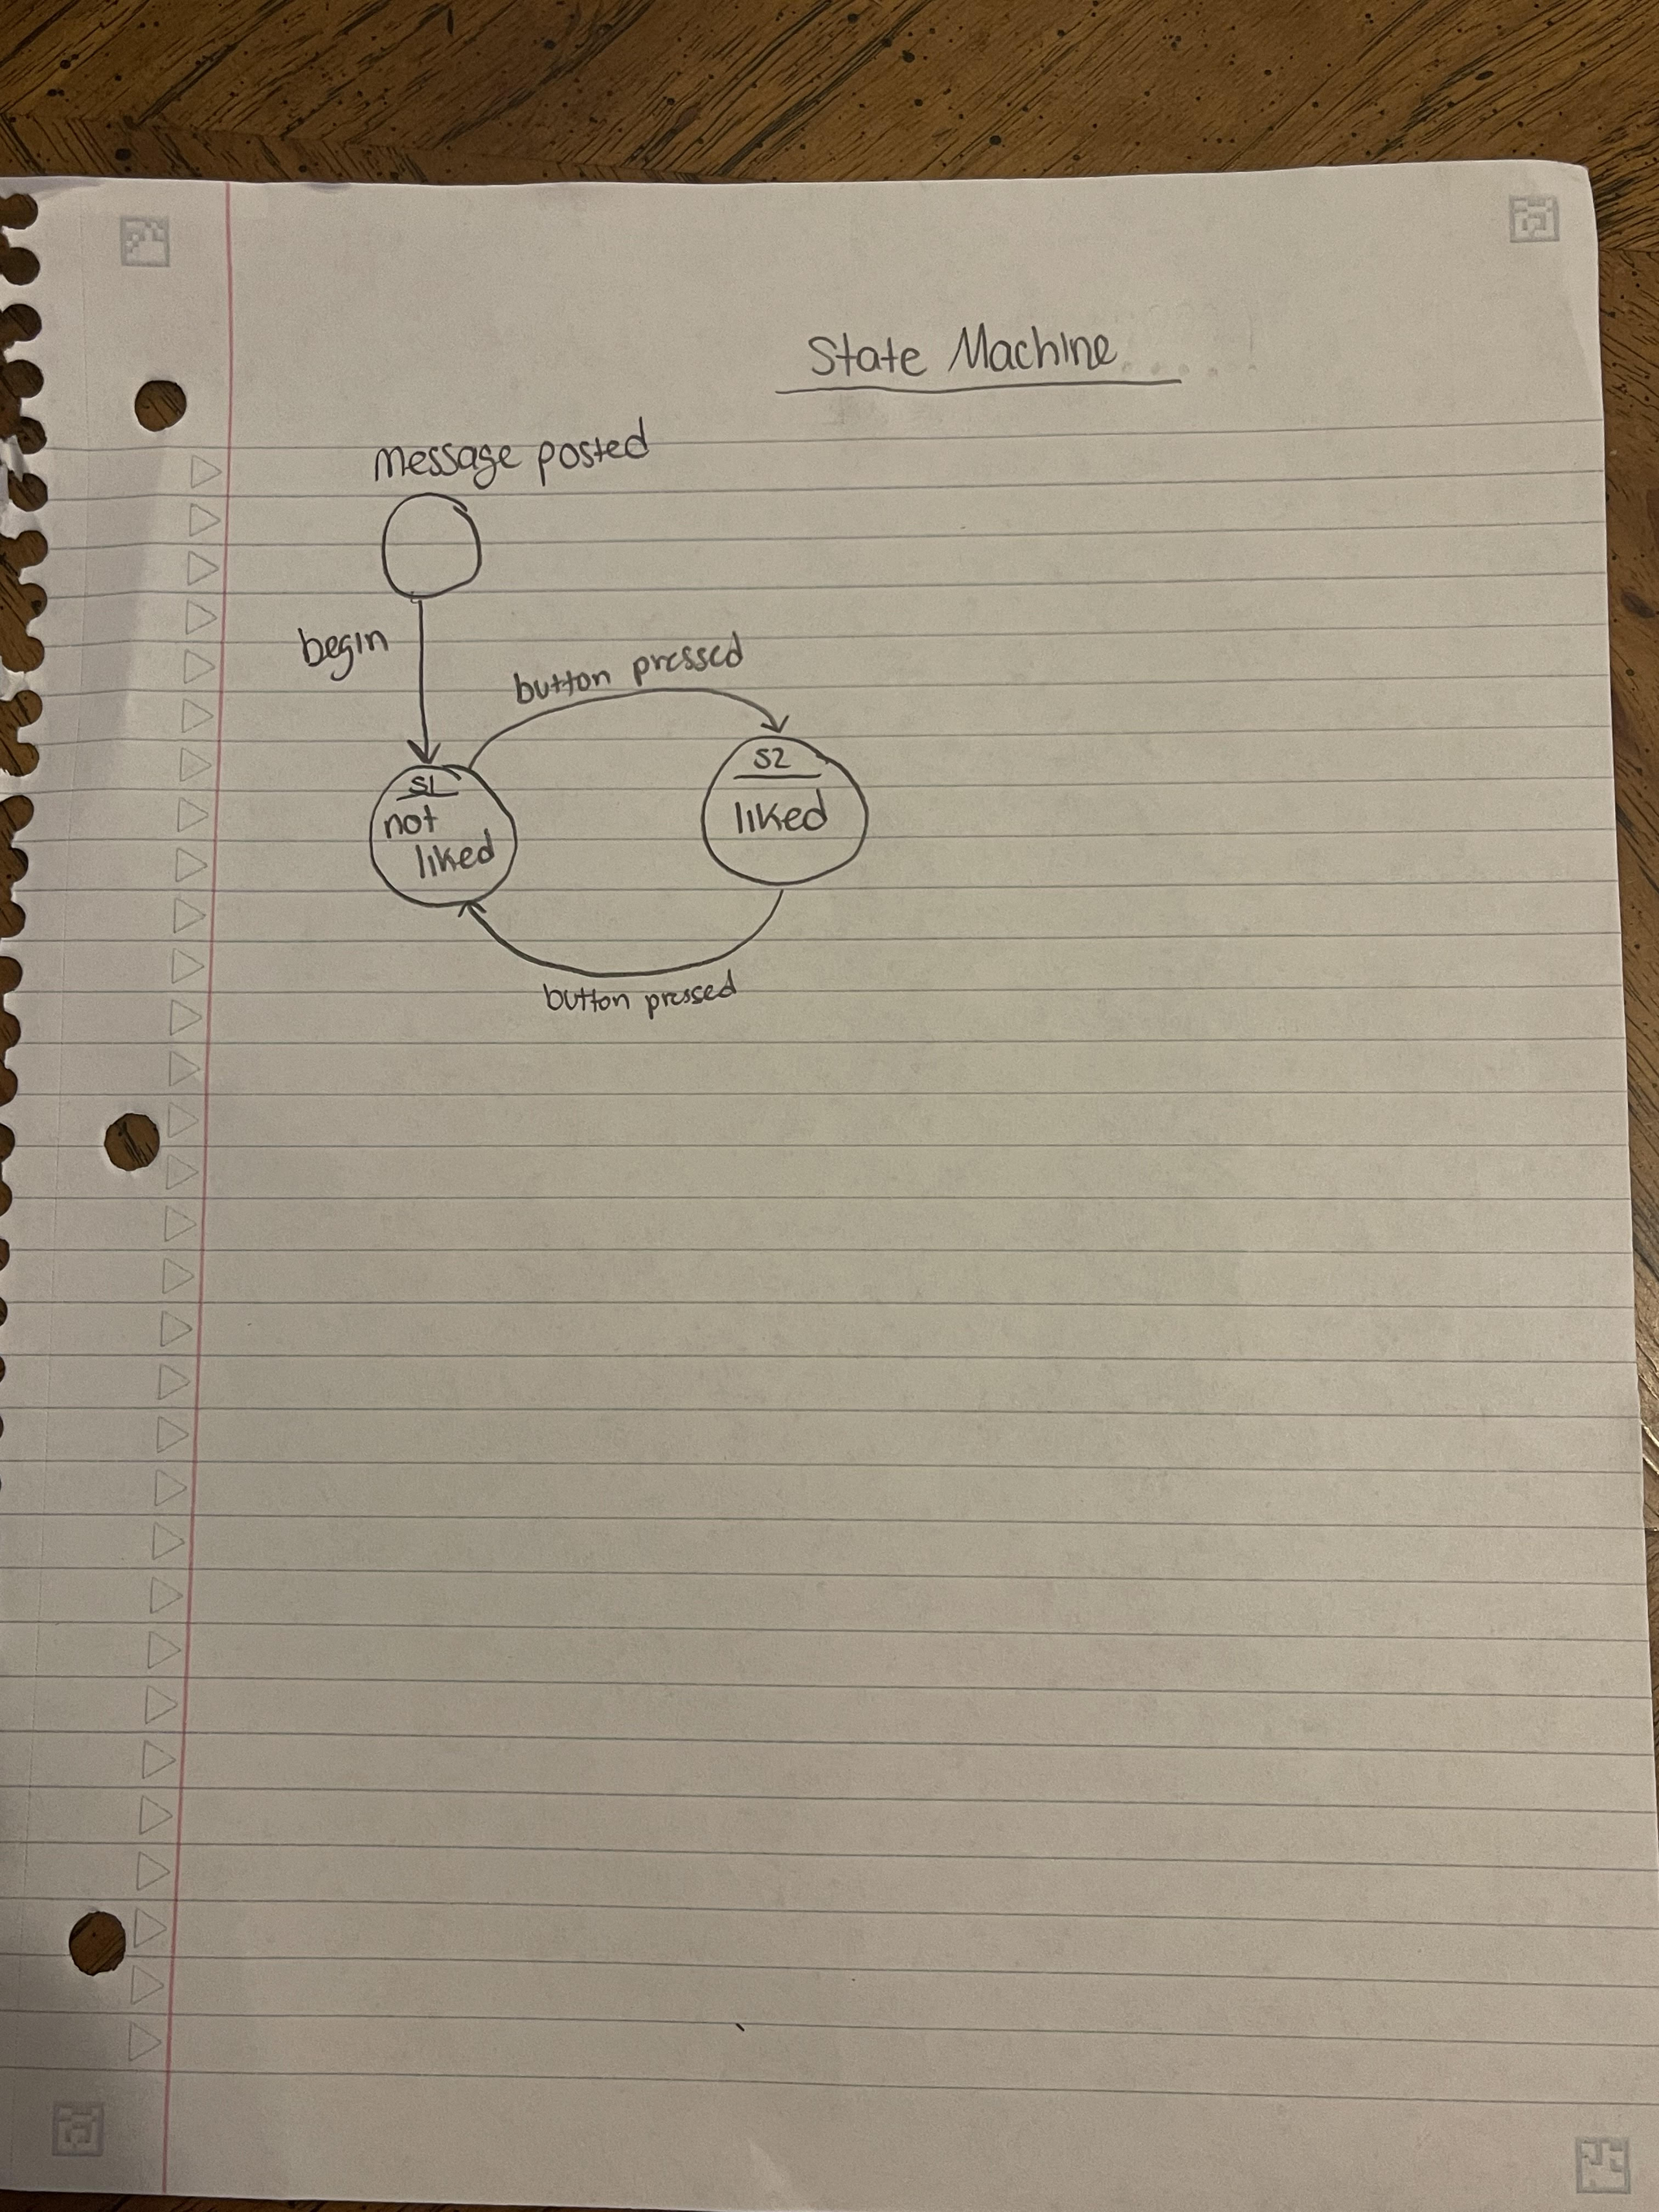 State Machine
message posted
begin
button pressed
S1
not
liked
S2
liked
button pressed